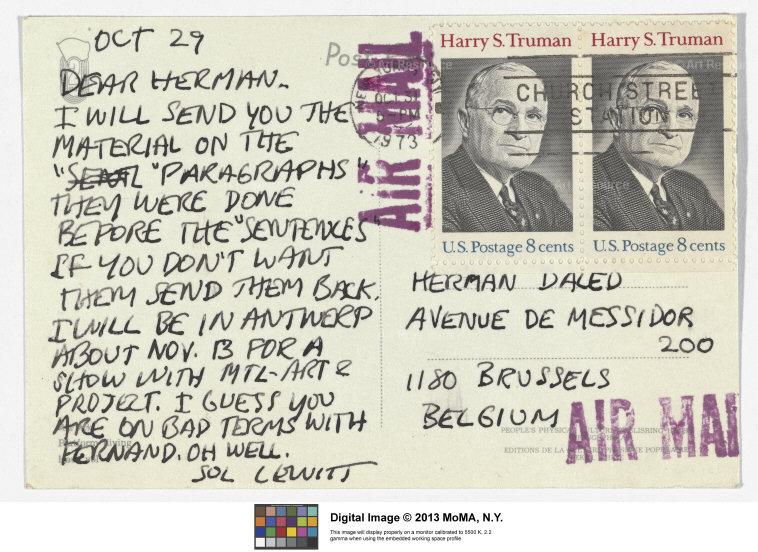 OCT 29
DEAR HERMAN.
I WILL SEND YOU THE
MATERIAL ON THE
"PARAGRAPHS"
THEY WERE DONE
BEFORE THE "SENTENCES"
IF YOU DON'T WANT
THEM SEND THEM BACK.
I WILL BE IN ANTWERP
ABOUT NOV. 13 FOR A
SHOW WITH MTL-ART &
PROJECT. I GUESS YOU
ARE ON BAD TERMS WITH
FERNAND. OH WELL.
SOL LEWITT
AIR MAIL
1973
CHURCH STREE
STATION
Harry S. Truman
U.S. Postage 8 cents
Harry S. Truman
U.S. Postage 8 cents
HERMAN DALED
AVENUE DE MESSIDOR
200
1180 BRUSSELS
BELGIUM
AIR MAI
Digital Image © 2013 MoMA, N.Y.
This image will display properly on a monitor calibrated to 5500 K, 2.2
gamma when using the embedded working space profile